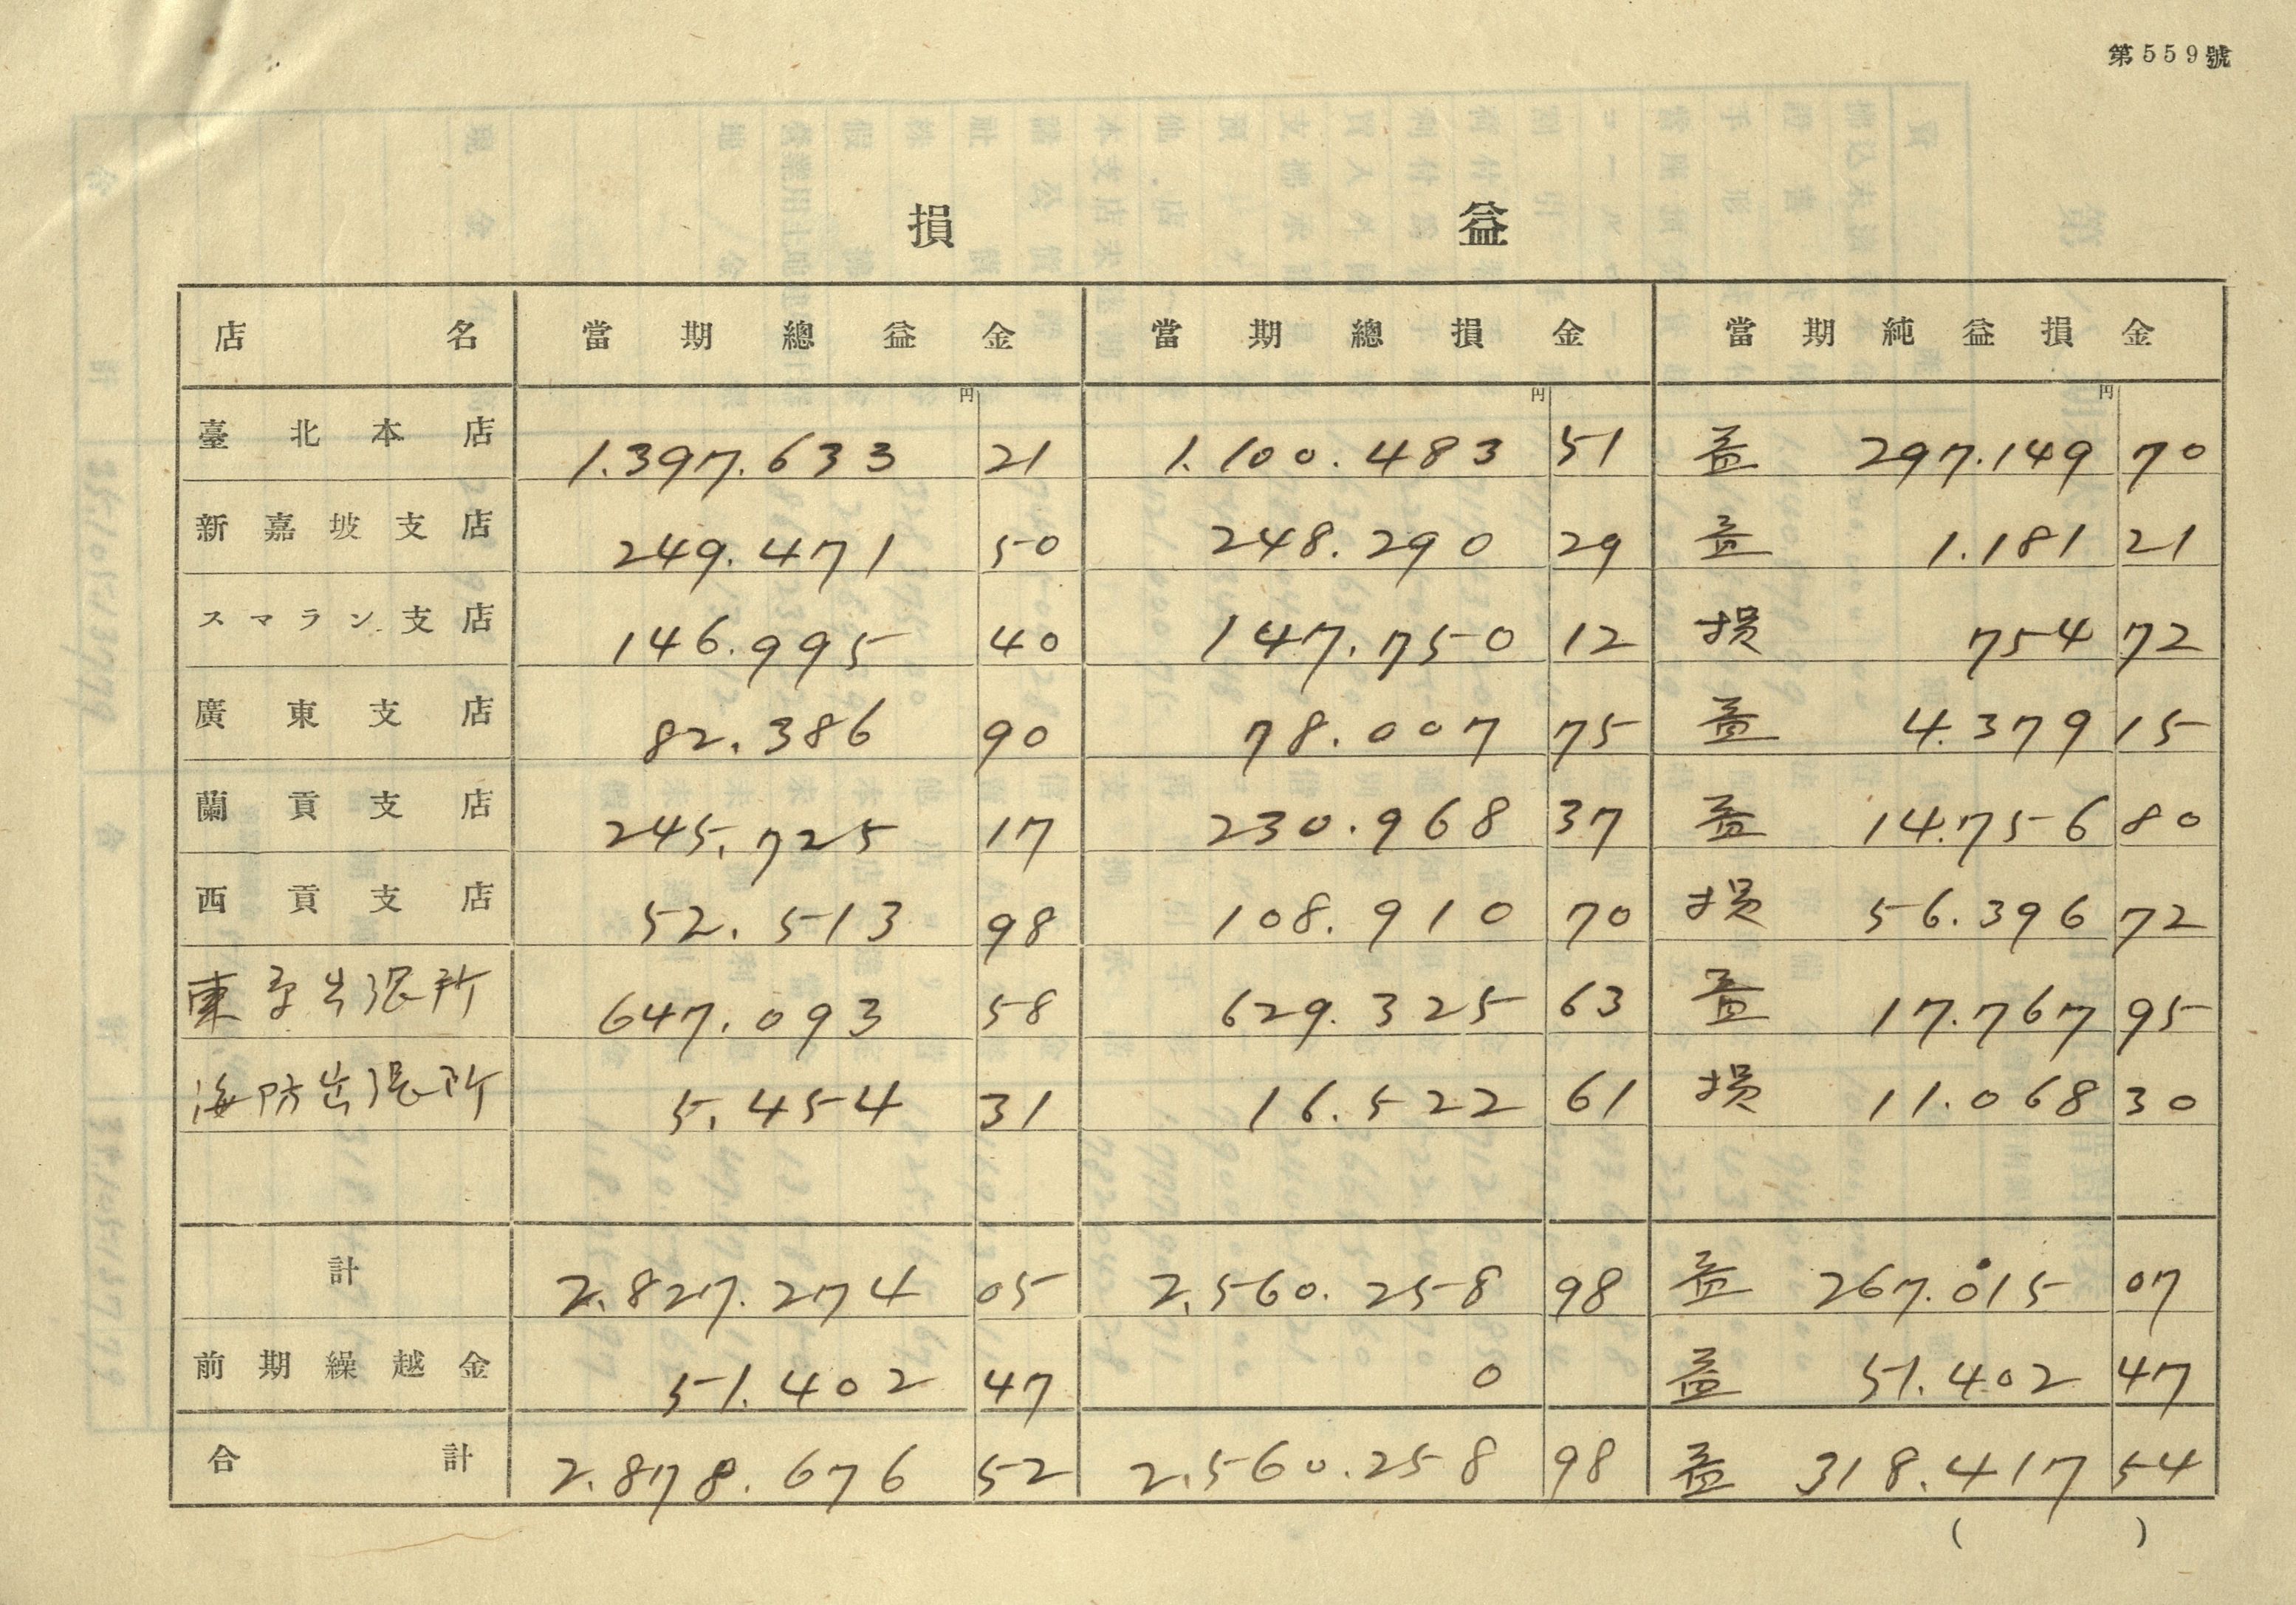 第559號
損 益
店名 當期總益金 當期總損金 當期純益損金
円 円 円
臺北本店 1.397.633 21 1.100.483 51 益 297.149 70
新嘉坡支店 249.471 50 248.290 29 益 1.181 21
スマラン支店 146.995 40 147.750 12 損 754 72
廣東支店 82.386 90 78.007 75 益 4.379 15
蘭貢支店 245.725 17 230.968 37 益 14.756 80
西貢支店 52.513 98 108.910 70 損 56.396 72
東京出張所 647.093 58 629.325 63 益 17.767 95
海防出張所 5.454 31 16.522 61 損 11.068 30
計 2.827.274 05 2.560.258 98 益 267.015 07
前期繰越金 51.402 47 0 益 51.402 47
合計 2.878.676 52 2.560.258 98 益 318.417 54
( )